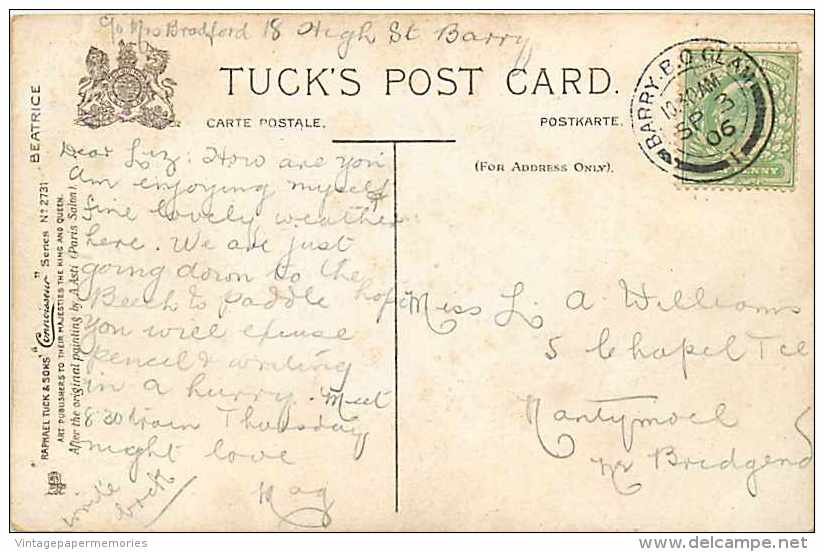 c/o Mrs Bradford 18 High St Barry
TUCK'S POST CARD.
CARTE POSTALE.
POSTKARTE.
(FOR ADDRESS ONLY).
BARRY. B.O GLAM
10.30 AM
SP 3
06
1
PENNY
BEATRICE
"RAPHAEL TUCK & SONS' "Connoisseur" Series Nº 2731
ART PUBLISHERS TO THEIR MAJESTIES THE KING AND QUEEN.
After the original painting by A. Asti (Paris Salon).
Dear Liz: How are you
Am enjoying myself
fine lovely weather
here. We are just
going down to the
Beech to paddle hope
you will excuse
pencil & writing
in a hurry. Meet
8 20 train Thursday
night love
Mag
write
back
Miss L. A. Williams
5 Chapel Tce
Nantymoel
nr Bridgend
Vintagepapermemories
delcampe.net